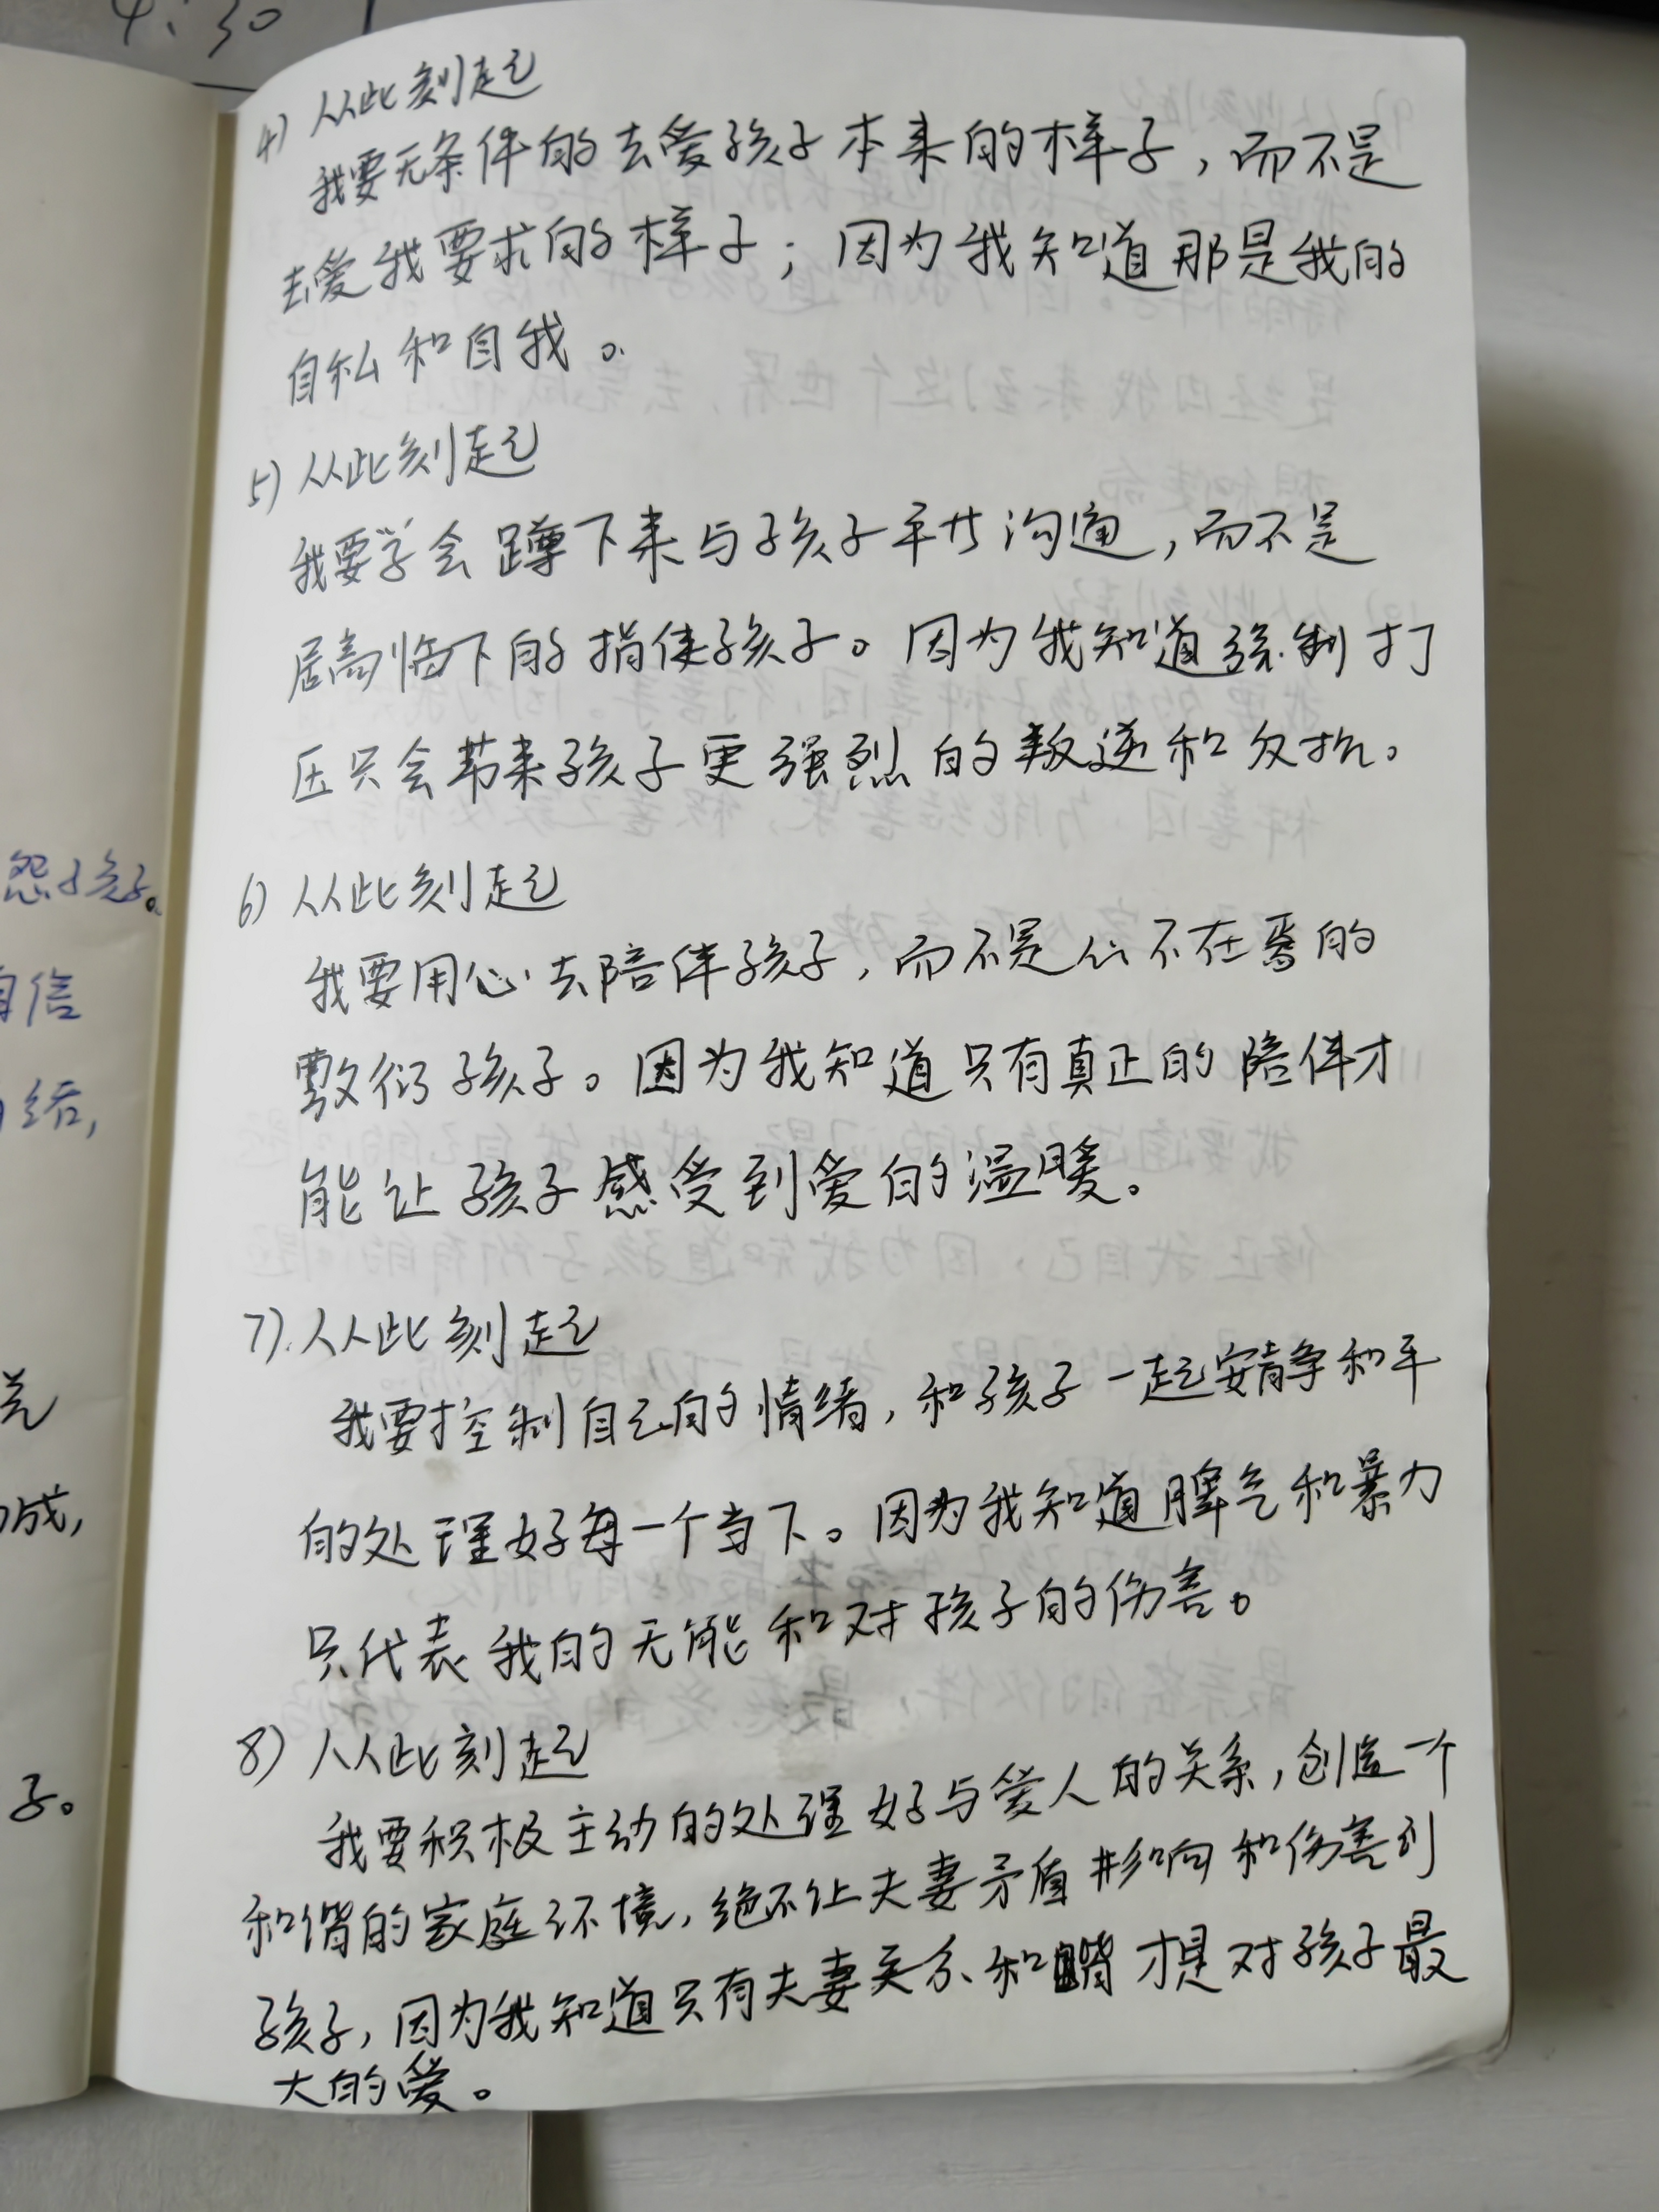 4:30
怨孩子。
自信
结,
成,
子。
4) 从此刻起
我要无条件的去爱孩子本来的样子,而不是
去爱我要求的样子;因为我知道那是我的
自私和自我。
5) 从此刻起
我要学会蹲下来与孩子平共沟通,而不是
居高临下的指使孩子。因为我知道强制打
压只会带来孩子更强烈的叛逆和反抗。
6) 从此刻起
我要用心去陪伴孩子,而不是心不在焉的
敷衍孩子。因为我知道只有真正的陪伴才
能让孩子感受到爱的温暖。
7). 从此刻起
我要控制自己的情绪,和孩子一起安静和平
的处理好每一个当下。因为我知道脾气和暴力
只代表我的无能和对孩子的伤害。
8) 从此刻起
我要积极主动的处理好与爱人的关系,创造一个
和谐的家庭环境,绝不让夫妻矛盾影响和伤害到
孩子,因为我知道只有夫妻关系和谐才是对孩子最
大的爱。